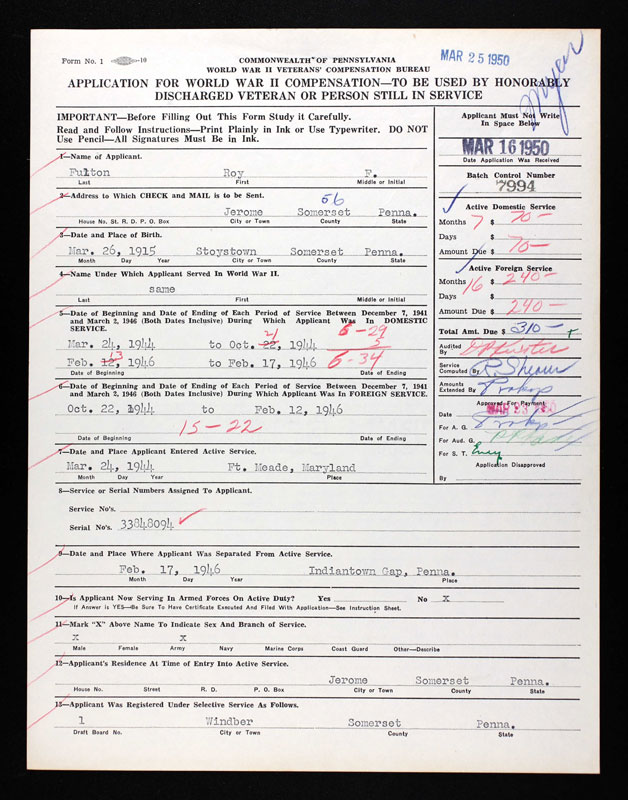 Form No. 1 —10
COMMONWEALTH OF PENNSYLVANIA
WORLD WAR II VETERANS' COMPENSATION BUREAU
MAR 25 1950
APPLICATION FOR WORLD WAR II COMPENSATION—TO BE USED BY HONORABLY
DISCHARGED VETERAN OR PERSON STILL IN SERVICE
IMPORTANT—Before Filling Out This Form Study it Carefully.
Read and Follow Instructions—Print Plainly in Ink or Use Typewriter. DO NOT
Use Pencil—All Signatures Must Be in Ink.
1—Name of Applicant.
Fulton Roy F.
Last First Middle or Initial
2—Address to Which CHECK and MAIL is to be Sent.
56
Jerome Somerset Penna.
House No. St. R. D. P. O. Box City or Town County State
3—Date and Place of Birth.
Mar. 26, 1915 Stoystown Somerset Penna.
Month Day Year City or Town County State
4—Name Under Which Applicant Served In World War II.
same
Last First Middle or Initial
5—Date of Beginning and Date of Ending of Each Period of Service Between December 7, 1941
and March 2, 1946 (Both Dates Inclusive) During Which Applicant Was In DOMESTIC
SERVICE.
6-29
21
5
Mar. 24, 1944 to Oct. 22, 1944
13
Feb. 12, 1946 to Feb. 17, 1946 6-34
Date of Beginning Date of Ending
6—Date of Beginning and Date of Ending of Each Period of Service Between December 7, 1941
and March 2, 1946 (Both Dates Inclusive) During Which Applicant Was In FOREIGN SERVICE.
Oct. 22, 1944 to Feb. 12, 1946
15-22
Date of Beginning Date of Ending
7—Date and Place Applicant Entered Active Service.
Mar. 24, 1944 Ft. Meade, Maryland
Month Day Year Place
8—Service or Serial Numbers Assigned To Applicant.
Service No's.
Serial No's. 33848094
9—Date and Place Where Applicant Was Separated From Active Service.
Feb. 17, 1946 Indiantown Gap, Penna.
Month Day Year Place
10—Is Applicant Now Serving In Armed Forces On Active Duty? Yes No X
If Answer is YES—Be Sure To Have Certificate Executed And Filed With Application—See Instruction Sheet.
11—Mark "X" Above Name To Indicate Sex and Branch of Service.
X X
Male Female Army Navy Marine Corps Coast Guard Other—Describe
12—Applicant's Residence At Time of Entry Into Active Service.
Jerome Somerset Penna.
House No. Street R. D. P. O. Box City or Town County State
13—Applicant Was Registered Under Selective Service As Follows.
1 Windber Somerset Penna.
Draft Board No. City or Town County State
Applicant Must Not Write
In Space Below
MAR 16 1950
Date Application Was Received
Batch Control Number
7994
Active Domestic Service
Months 7 $ 70—
Days $
Amount Due $ 70—
Active Foreign Service
Months 16 $ 240—
Days $
Amount Due $ 240—
Total Amt. Due $ 310—
Audited
By
Service
Computed By R. Shearer
Amounts
Extended By Prokop
Approved For Payment
Date MAR 23 1950
For A. G. Prokop
For Aud. G.
For S. T.
Application Disapproved
By